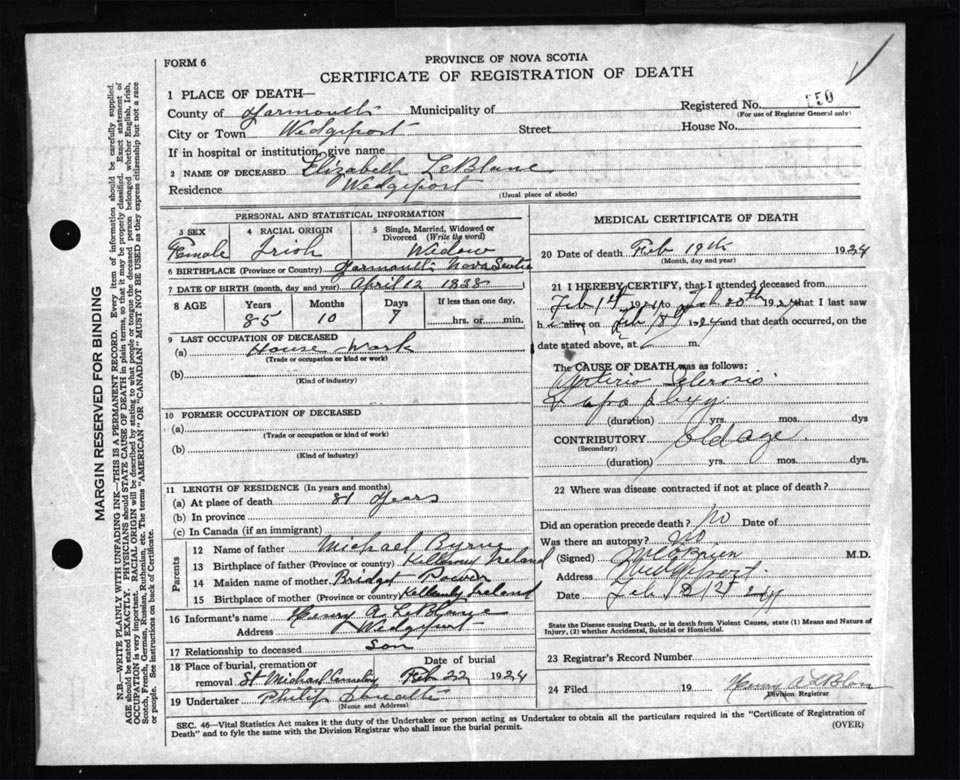 FORM 6
PROVINCE OF NOVA SCOTIA
CERTIFICATE OF REGISTRATION OF DEATH
1 PLACE OF DEATH—
County of Yarmouth Municipality of Registered No. 550
(For use of Registrar General only)
City or Town Wedgeport Street House No.
If in hospital or institution, give name
2 NAME OF DECEASED Elizabeth LeBlanc
Residence Wedgeport
(Usual place of abode)
PERSONAL AND STATISTICAL INFORMATION
3 SEX 4 RACIAL ORIGIN 5 Single, Married, Widowed or Divorced (Write the word)
Female Irish Widow
6 BIRTHPLACE (Province or Country) Yarmouth Nova Scotia
7 DATE OF BIRTH (month, day and year) April 12 1838
8 AGE Years Months Days If less than one day,
85 10 7 hrs. or min.
9 LAST OCCUPATION OF DECEASED
(a) House Work
(Trade or occupation or kind of work)
(b)
(Kind of industry)
10 FORMER OCCUPATION OF DECEASED
(a)
(Trade or occupation or kind of work)
(b)
(Kind of industry)
11 LENGTH OF RESIDENCE (In years and months)
(a) At place of death 81 Years
(b) In province
(c) In Canada (if an immigrant)
Parents
12 Name of father Michael Byrne
13 Birthplace of father (Province or country) Ireland
14 Maiden name of mother Bridget Power
15 Birthplace of mother (Province or country) Ireland
16 Informant's name Henry A LeBlanc
Address Wedgeport
17 Relationship to deceased son
18 Place of burial, cremation or removal St Michael Cemetery Date of burial Feb 22 1924
19 Undertaker Philip
(Name and Address)
MEDICAL CERTIFICATE OF DEATH
20 Date of death Feb 19th 1924
(Month, day and year)
21 I HEREBY CERTIFY, that I attended deceased from
Feb 1924 to 1924 that I last saw
h alive on Feb 1924 and that death occurred, on
the date stated above, at m.
The CAUSE OF DEATH was as follows:
Arterio Sclerosis
& apoplexy
(duration) yrs. mos. dys.
CONTRIBUTORY old age
(Secondary)
(duration) yrs. mos. dys.
22 Where was disease contracted if not at place of death?
Did an operation precede death? No Date of
Was there an autopsy? No
(Signed) M O'Brien M.D.
Address Wedgeport
Date Feb 24
State the Disease causing Death, or in death from Violent Causes, state (1) Means and Nature of
Injury, (2) whether Accidental, Suicidal or Homicidal.
23 Registrar's Record Number
24 Filed 19 Henry A LeBlanc
Division Registrar
SEC. 46—Vital Statistics Act makes it the duty of the Undertaker or person acting as Undertaker to obtain all the particulars required in the "Certificate of Registration of
Death" and to fyle the same with the Division Registrar who shall issue the burial permit. (OVER)
MARGIN RESERVED FOR BINDING
N.B.—WRITE PLAINLY WITH UNFADING INK—THIS IS A PERMANENT RECORD. Every item of information should be carefully supplied.
AGE should be stated EXACTLY. PHYSICIANS should STATE CAUSE OF DEATH in plain terms, so that it may be properly classified. Exact statement of
OCCUPATION is very important. RACIAL ORIGIN will be described by stating to what people or tongue the deceased person belonged whether English, Irish,
Scotch, French, German, Russian, Ruthenian, etc. The terms "AMERICAN" OR "CANADIAN" MUST NOT BE USED as they express citizenship but not a race
or people. See instructions on back of Certificate.